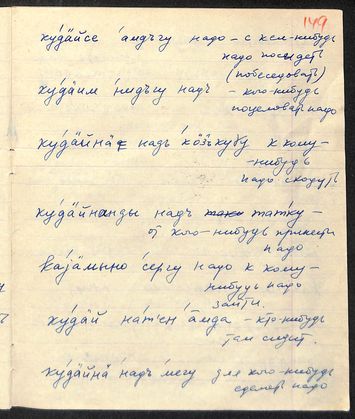 149
ху́дӓйсе а́мдъгу надо – с кем-нибудь
надо посидеть
(побеседовать)
ху́дӓим ни́дъгу надъ – кого-нибудь
поцеловать надо
ху́дӓйнӓ надъ кӧзъкугу к кому-
-нибудь
надо сходить
ху́дӓйнанды надъ татку –
от кого-нибудь принести
надо
сергу надо к кому-
нибудь надо
зайти.
ху́дӓй на́тен а́мда – кто-нибудь
там сидит.
ху́дӓйнӓ надъ ме́гу для кого-нибудь
сделать надо